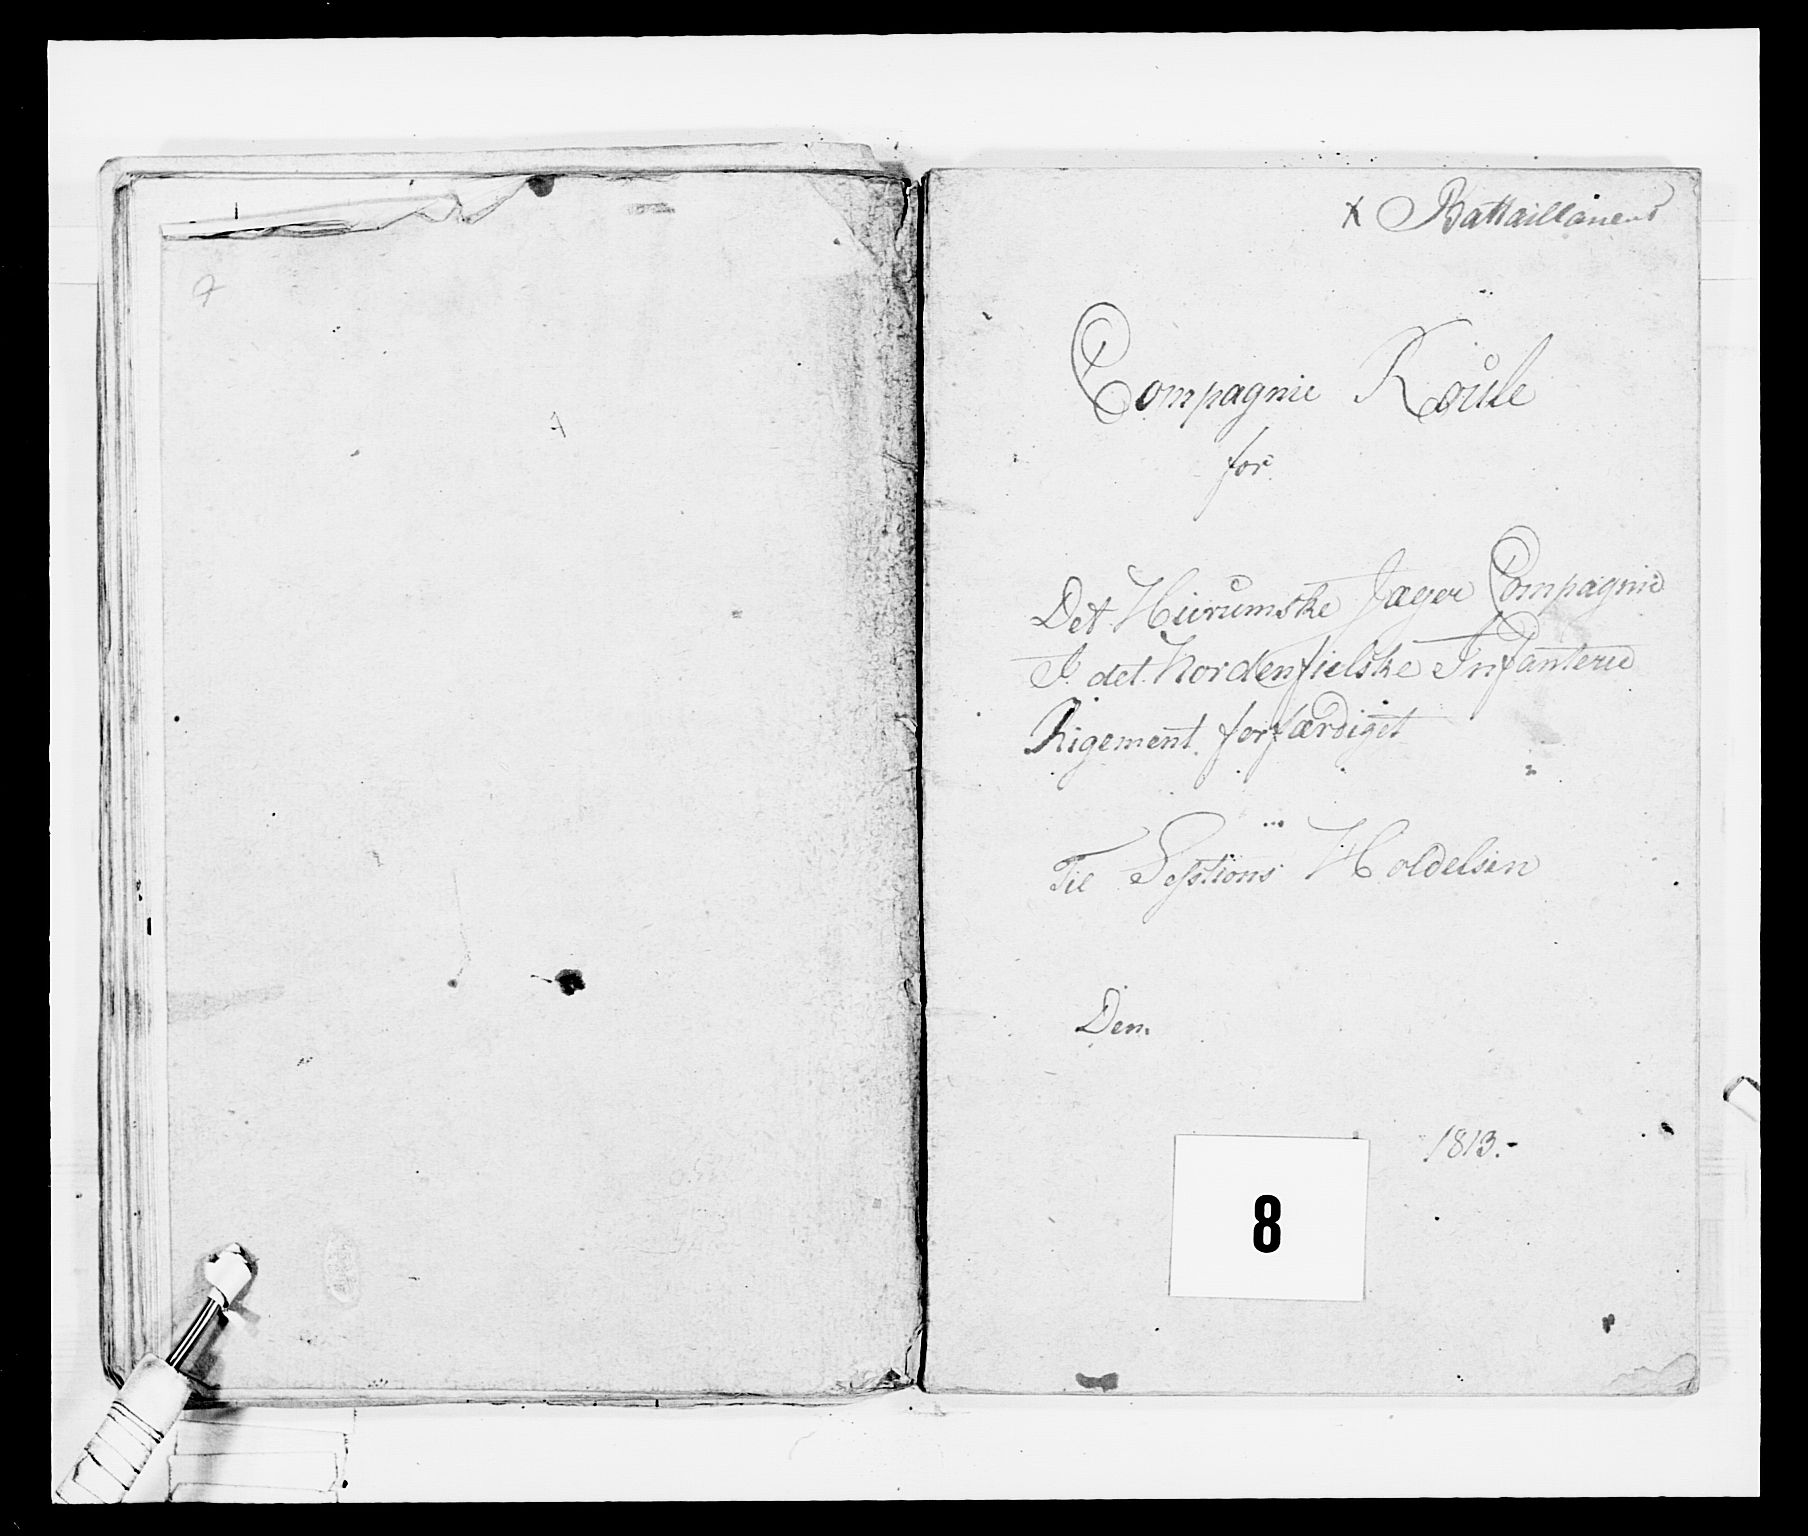 x Battaillanens
Compagnie Roule
for
Det Hierumske Jæger Compagnie
I det Nordenfielske Infanterie
Rigement forfærdiget
Til Sesstions Holdelsen
Den
1813.-
8